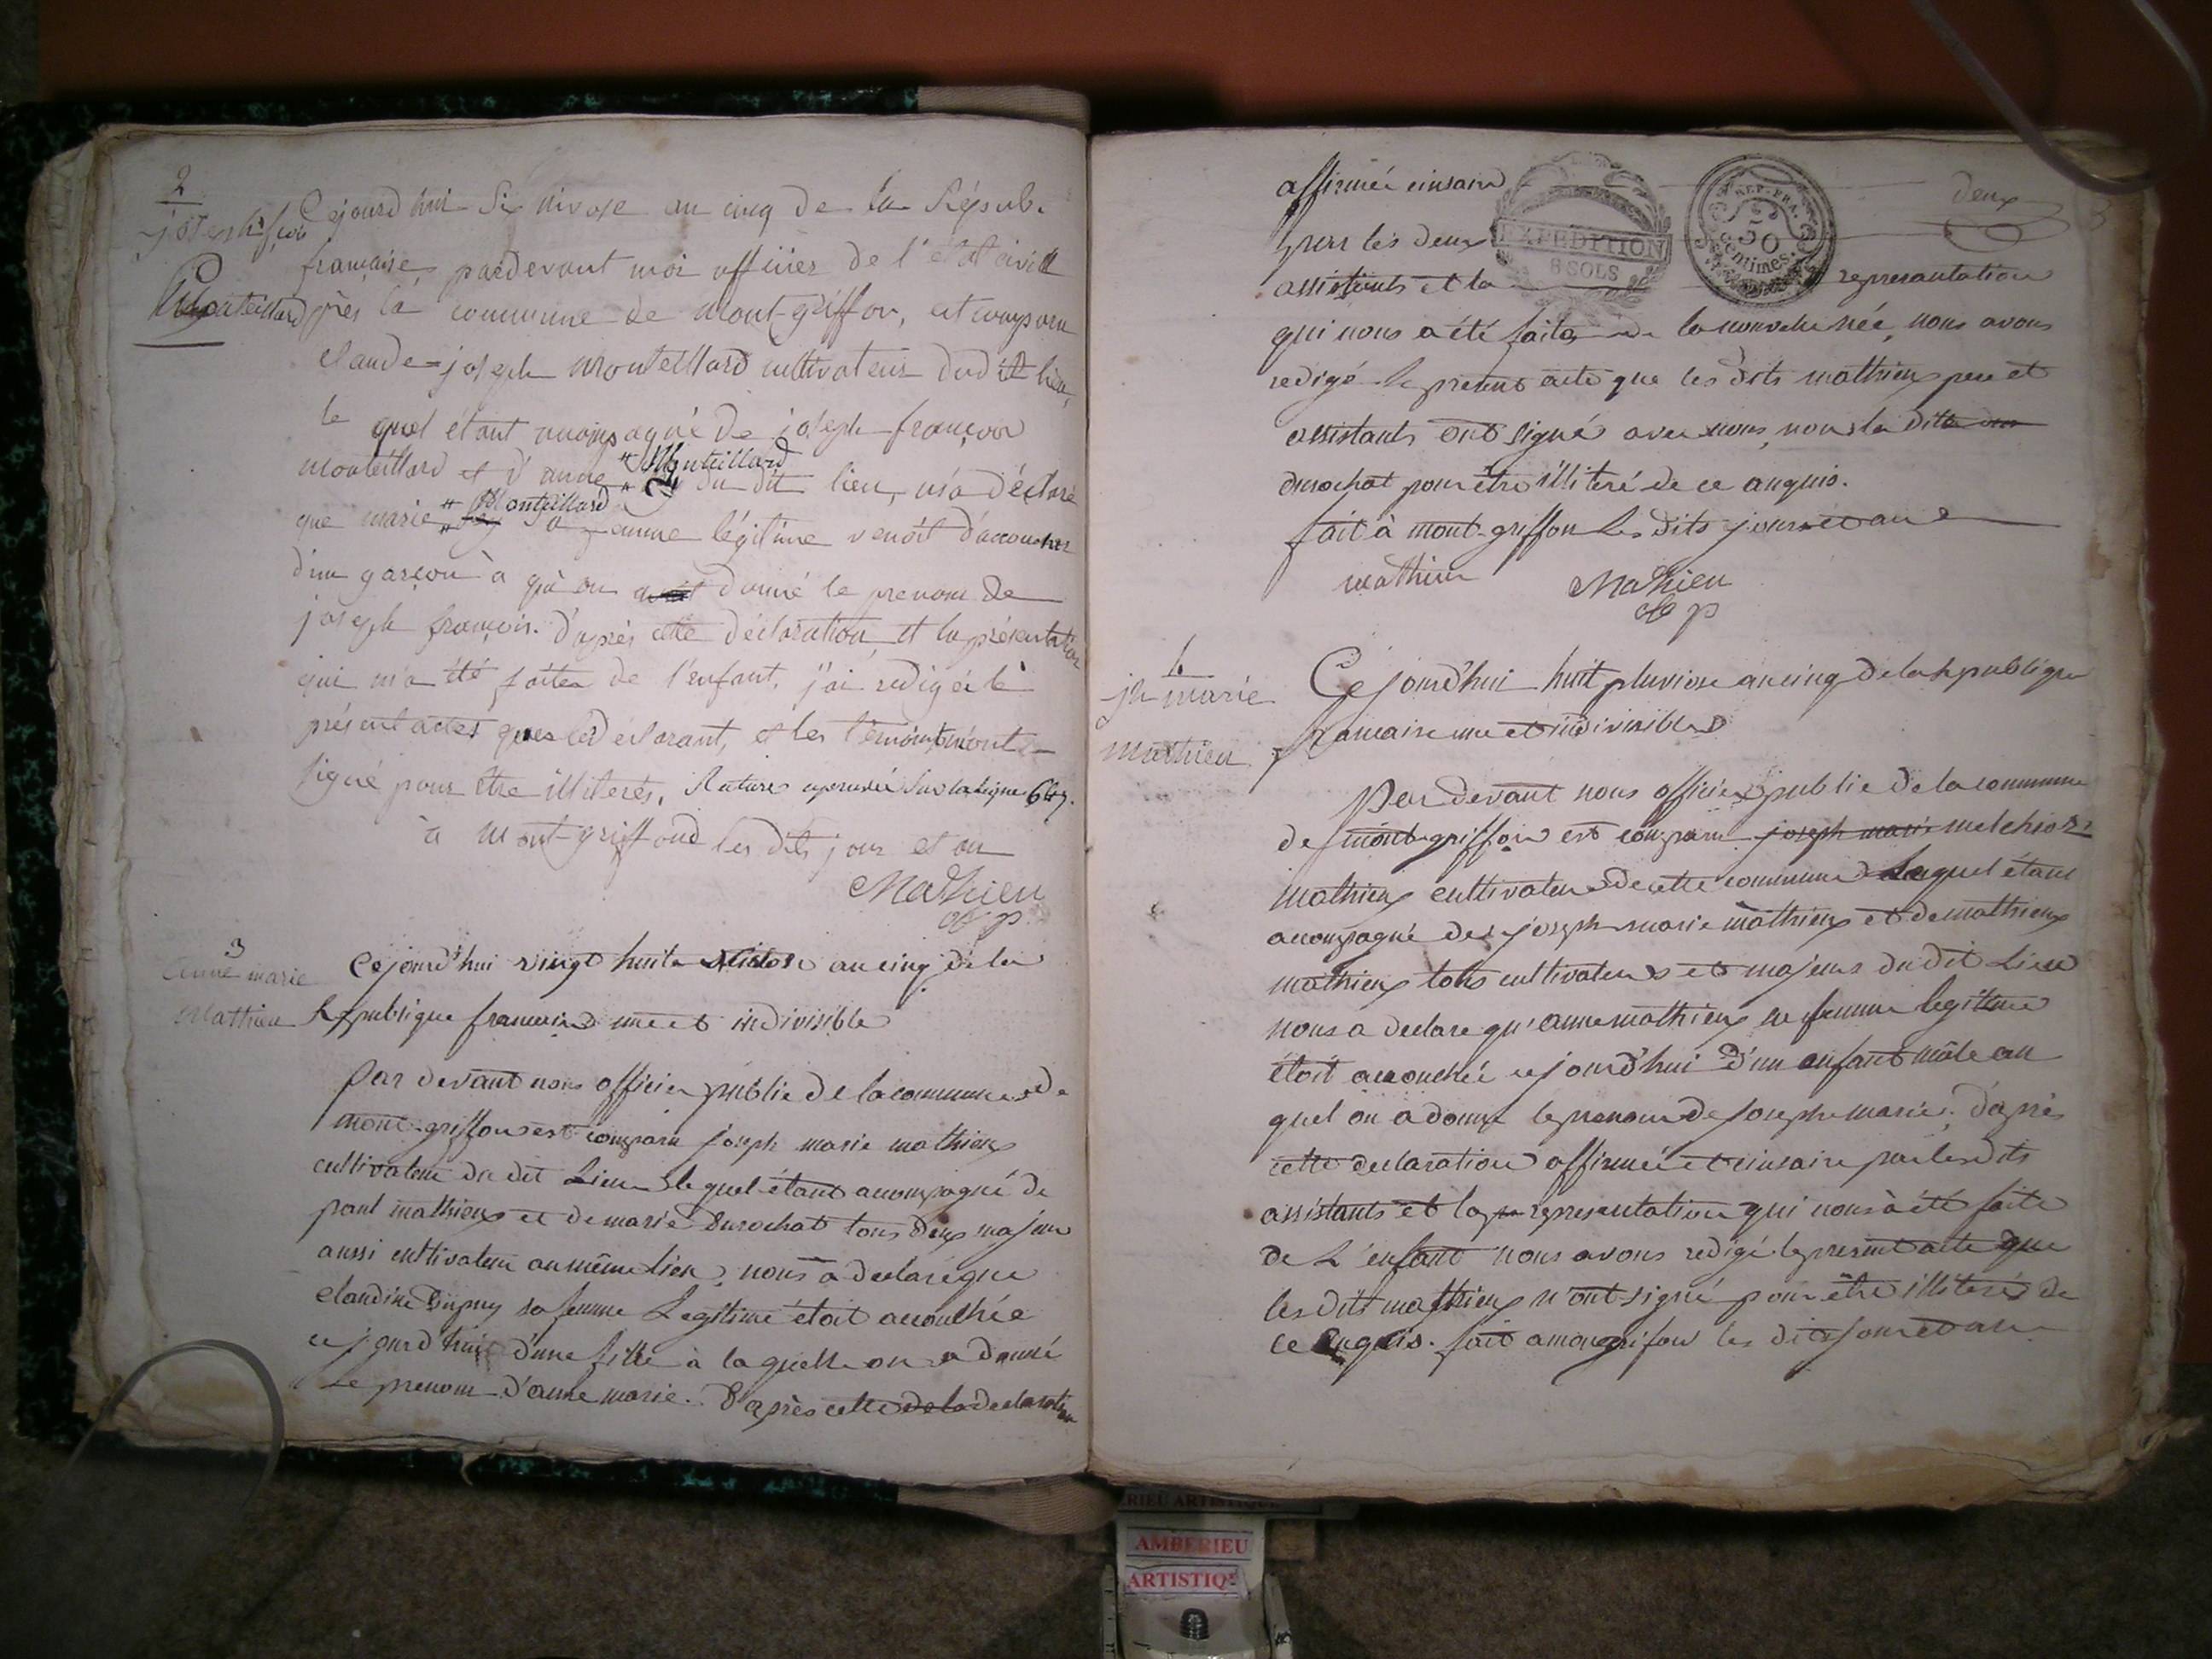 2
joseph fçois
Monteillard
Cejourd'hui Six nivose an cinq de la Répub.
française, pardevant moi officier de l'état civill
près la commune de Mont-griffon, est comparu
claude=joseph Monteillard cultivateur dudit lieu,
le quel étant accompagné de joseph françois
"Monteillard
monteillard et d'anne " du dit lieu, m'a déclaré
" Monteillard
que marie " sa femme légitime venoit d'accoucher
d'un garçon à qui on avoit donné le prenom de
joseph françois. d'après cette déclaration, et la présentation
qui m'a été faites de l'enfant, j'ai redigés le
présent actes que le déclarant, et les témoins n'ont
signé pour être illiterés. Rature aprouvée sur la ligne 6 et 7.
à Mont-griffond les dits jour et an
Mathieu
of p
3
Anne marie
Mathieu
Cejourd'hui vingt huit nivose an cinq de la
Republique francaise une et indivisible
par devant nous officier public de la commune de
mont-griffon est comparu joseph marie mathieux
cultivateur du dit Lieu lequel étant accompagné de
paul mathieux et de marie Durochat tous deux majeur
aussi cultivateur au même lieu, nous a declaré que
claudine Dupuy sa femme Legitime étoit accouchée
ce jourd'hui d'une fille à laquelle on a donné
Le prenom d'anne marie. D'après cette de la declaration
deux
affirmée sinsaire
par les deux
EXPEDITION
8 SOLS
REP. FRA.
50
centimes.
assistants et la representation
qui nous a été faite de la nouvelle née, nous avons
redigé le present acte que les dits mathieux pere et
assistants ont signé avec nous, non la ditte
durochat pour être illiteré de ce anquis.
fait à mont-griffon les dits jours et an
mathieu Mathieu
of p
jh marie
mathieu
Ce jourd'hui huit pluviose an cinq de la republique
francaise une et indivisible
Par devant nous officier public de la commune
de mont-griffon est comparu joseph marie melchior
mathieux cultivateur de cette commune Lequel étant
accompagné de joseph marie mathieux et de mathieux
mathieux tous cultivateurs et majeurs du dit Lieu
nous a declare qu'anne mathieux sa femme legitime
étoit accouchée ce jourd'hui d'un enfant mâle au
quel on a donne le prenom de Joseph marie, d'après
cette declaration affirmée et sinsaire par les dits
assistants et la representation qui nous à été faite
de L'enfant nous avons redigé le present acte que
les dits mathieux n'ont signé pour être illiterés de
ce enquis. fait a mongrifon les dits jour et an
AMBERIEU
ARTISTIQUE